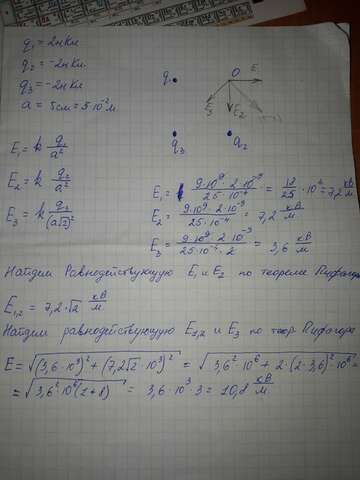 q₁ = 2нКл
q₂ = -2нКл
q₃ = -2нКл
a = 5см = 5·10⁻²м
q₁
O
E₁
E₃
E₂
q₃
q₂
E₁ = k q₁/a²
E₂ = k q₂/a²
E₃ = k q₃/(a√2)²
E₁ = 9·10⁹·2·10⁻⁹/25·10⁻⁴ = 18/25·10⁴ = 7,2 кВ/м
E₂ = 9·10⁹·2·10⁻⁹/25·10⁻⁴ = 7,2 кВ/м
E₃ = 9·10⁹·2·10⁻⁹/25·10⁻⁴·2 = 3,6 кВ/м
Найдем Равнодействующую E₁ и E₂ по теореме Пифагора
E₁,₂ = 7,2·√2 кВ/м
Найдем равнодействующую E₁,₂ и E₃ по теор Пифагора
E = √((3,6·10³)² + (7,2√2·10³)²) = √(3,6²·10⁶ + 2·(2·3,6)²·10⁶) =
= √(3,6²·10⁶(1+8)) = 3,6·10³·3 = 10,8 кВ/м